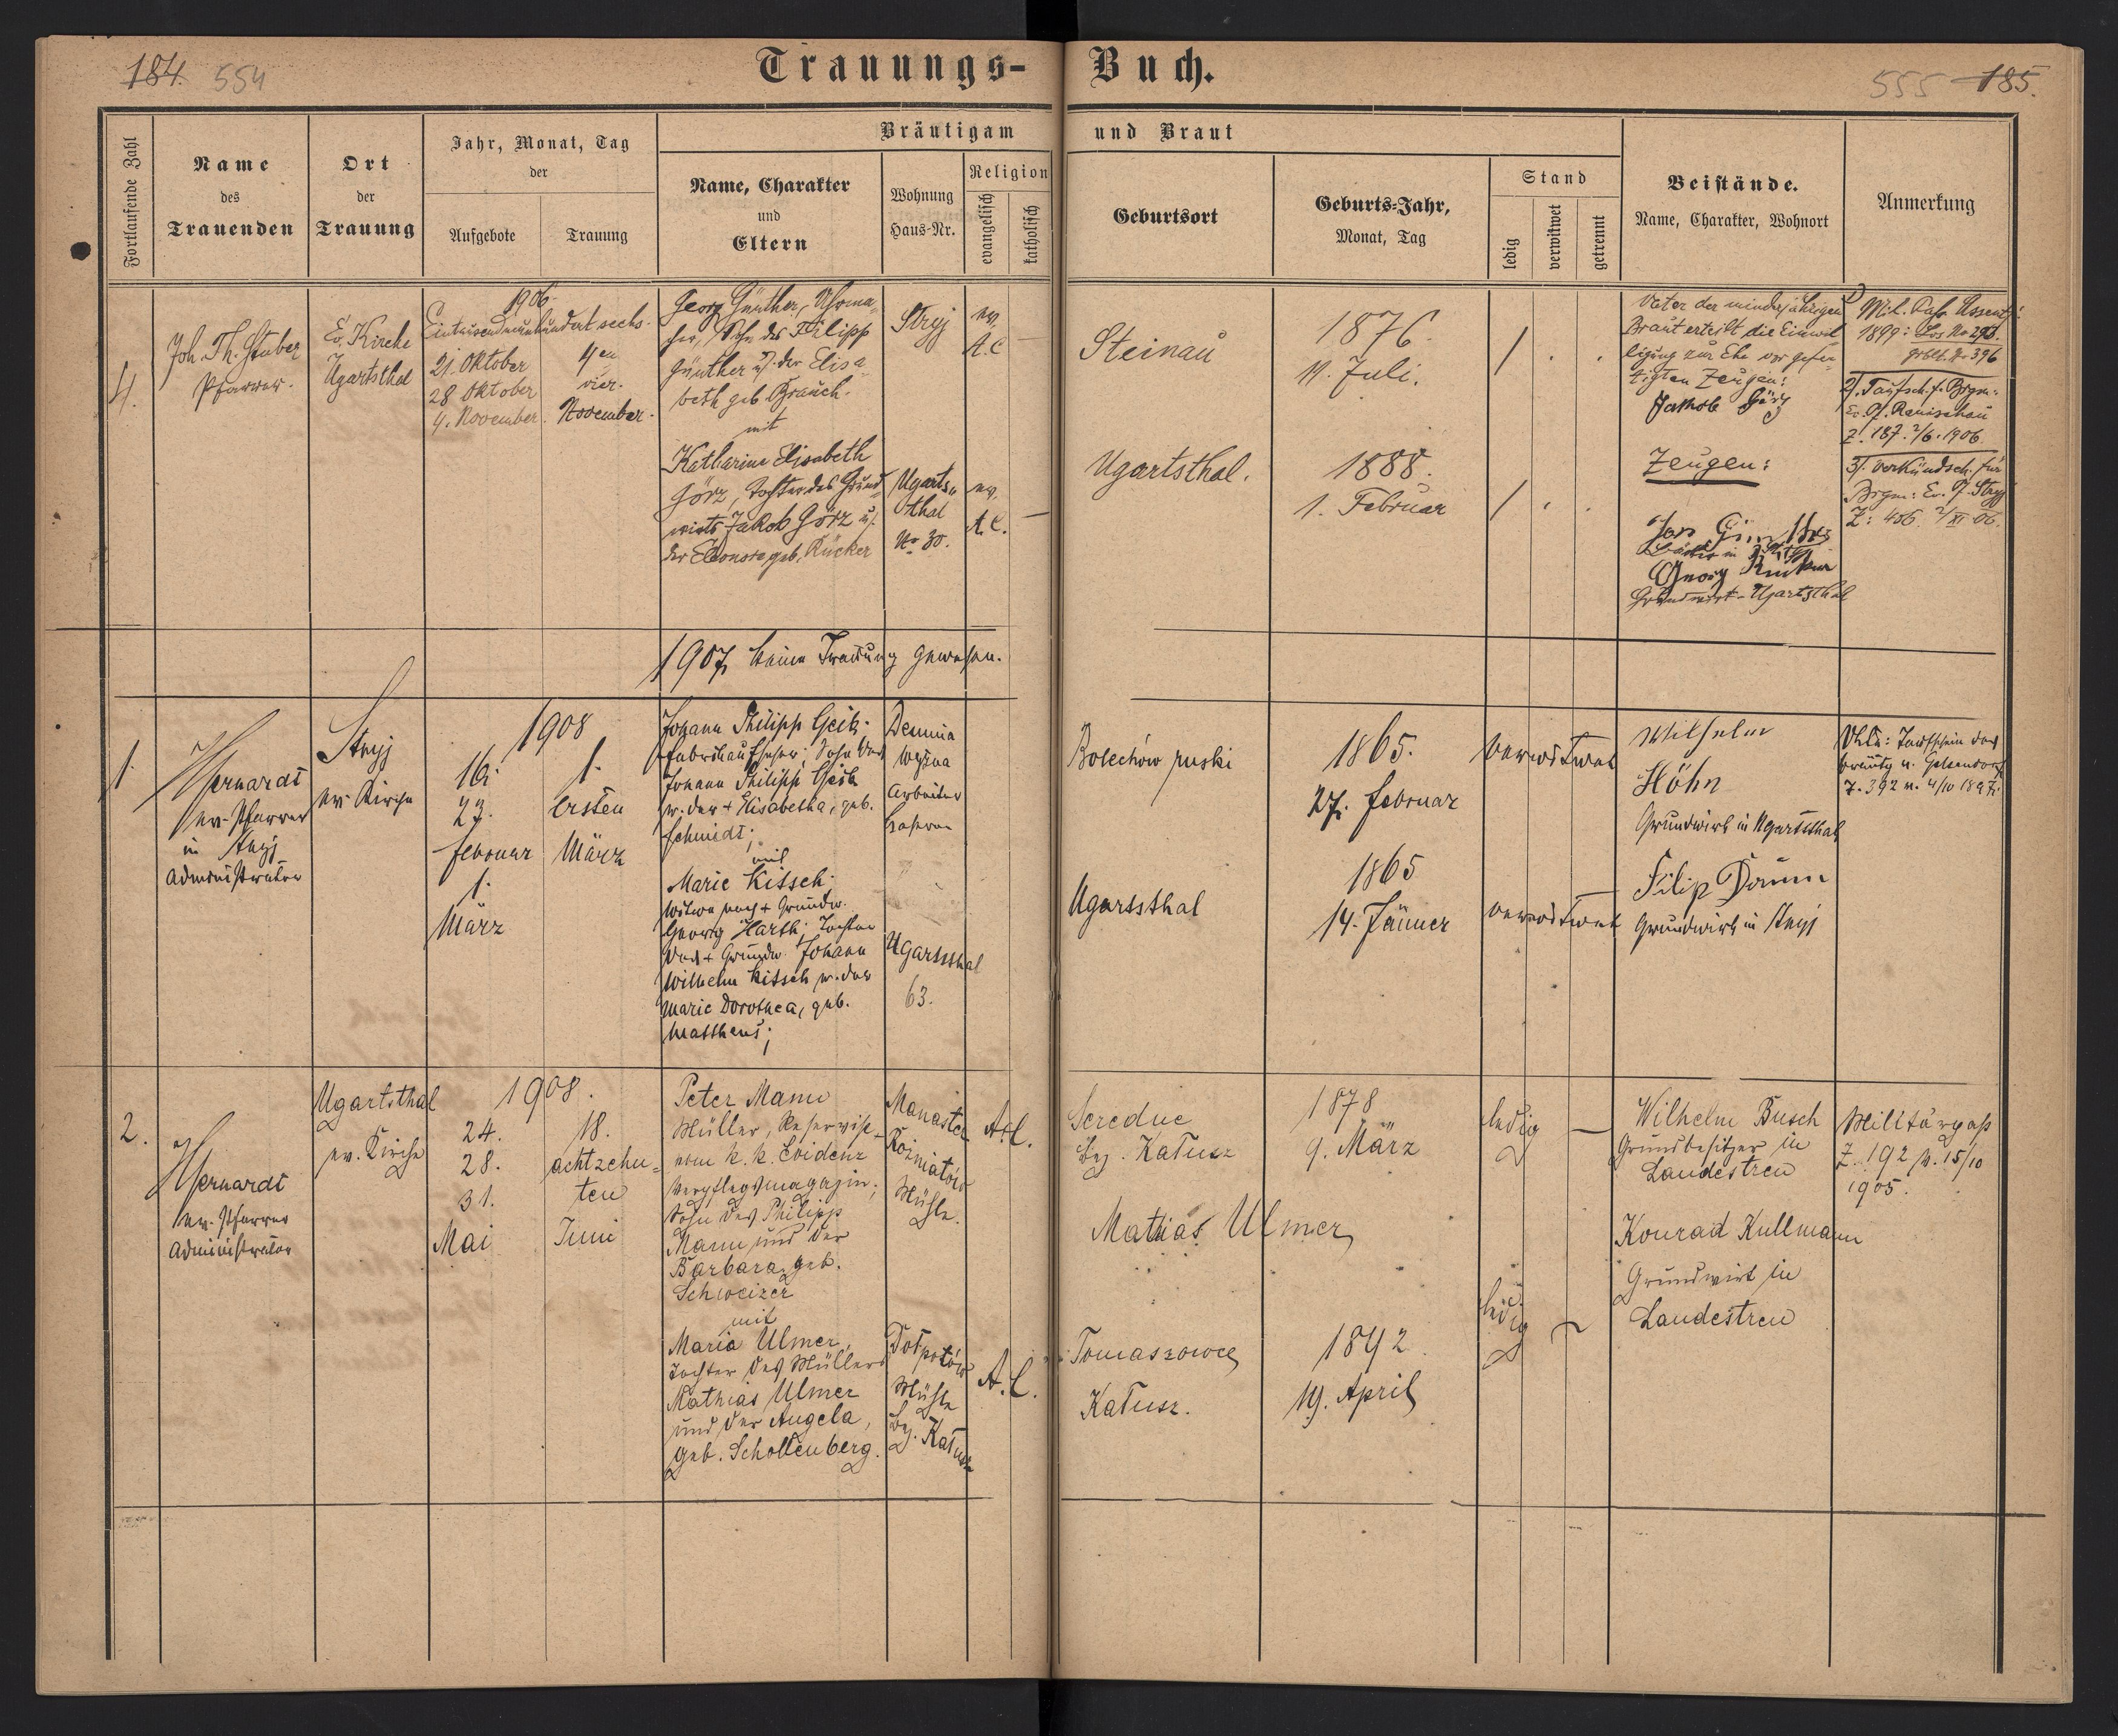 184. 554
Trauungs-Buch.
555 185.
Fortlaufende Zahl
Name
des
Trauenden
Ort
der
Trauung
Jahr, Monat, Tag
der
Aufgebote
Trauung
Bräutigam und Braut
Name, Charakter
und
Eltern
Wohnung
Haus-Nr.
Religion
evangelisch
katholisch
Geburtsort
Geburts-Jahr,
Monat, Tag
Stand
ledig
verwitwet
getrennt
Beistände.
Name, Charakter, Wohnort
Anmerkung
4.
Joh. Th. Stuber
Pfarrer.
Ev. Kirche
Ugartsthal
1906.
Eintausendneunhundert sechs.
21. Oktober
28 Oktober
4. November.
4en
vier.
November.
Georg Günther, Uhrma-
cher, Sohn des Filipp
Günther u. der Elisa-
beth geb. Brauch.
mit
Katharine Elisabeth
Görz, Tochter des Grund-
wirts Jakob Görz u.
der Eleonore geb. Rücker
Stryj
ev.
A.C.
Ugarts-
thal
No 30.
ev.
A.C.
Steinau
1876.
11. Juli.
Ugartsthal.
1888.
1. Februar
Vater der minderjährigen
Braut erteilt die Einwil-
ligung zur Ehe vor gefer-
tigten Zeugen:
Jakob Görz
Zeugen:
Georg
Grundwirt - Ugartsthal
1) Mil. Paß Assent:
1899:
No 396
2). Taufsch. f. Brgm:
Z. 187. 2/6. 1906
3). Verkündsch. für
Brgm: Ev. Pf. Stryj
Z: 456. 2/XI 06.
1907 keine Trauung gewesen.
1.
ev. Pfarrer
in Stryj
Administrator
Stryj
ev. Kirche
1908
16.
23.
Februar
1.
März
1.
ersten
März
Johann Philipp Geib;
Fabriksaufseher; Sohn des
Johann Philipp Geib
u. der + Elisabetha, geb.
Schmidt;
mit
Marie Kitsch
Witwe nach + Grundw.
Georg Harth; Tochter
des + Grundw. Johann
Wilhelm Kitsch u. der
Marie Dorothea, geb.
Mattheus;
Demnia
wyżna
Arbeiter
Ugartsthal
63.
Bolechów ruski
1865.
27. Februar
verwitwet
Ugartsthal
1865
14. Jänner
verwitwet
Wilhelm
Höhn
Grundwirt in Ugartsthal
Filip Daum
Grundwirt in Stryj
Taufschein des
Bräutg. v. Gelsendorf
Z. 392 v. 4/10 1897.
2.
ev. Pfarrer
Administrator
Ugartsthal
ev. Kirche
1908.
24.
28.
31.
Mai
18.
achtzehn-
ten
Juni
Peter Mann
Müller, Reservist
vom k. k. Evidenz
Verpflegsmagazin;
Sohn des Philipp
Mann und der
Barbara, geb.
Schweizer
mit
Maria Ulmer,
Tochter des Müllers
Mathias Ulmer
und der Angela,
geb. Schollenberg.
Manaster
Rożniatów
Mühle.
A.C.
Dołpotów
Mühle
Bez. Kałusz
A.C.
Seredne
Bez. Kałusz
1878
9. März
ledig
Mathias Ulmer
Tomaszowce
Kałusz.
1892
19. April
ledig
Wilhelm Busch
Grundbesitzer in
Landestreu
Konrad Kullmann
Grundwirt in
Landestreu
Militärpaß
Z. 192 v. 15/10
1905.